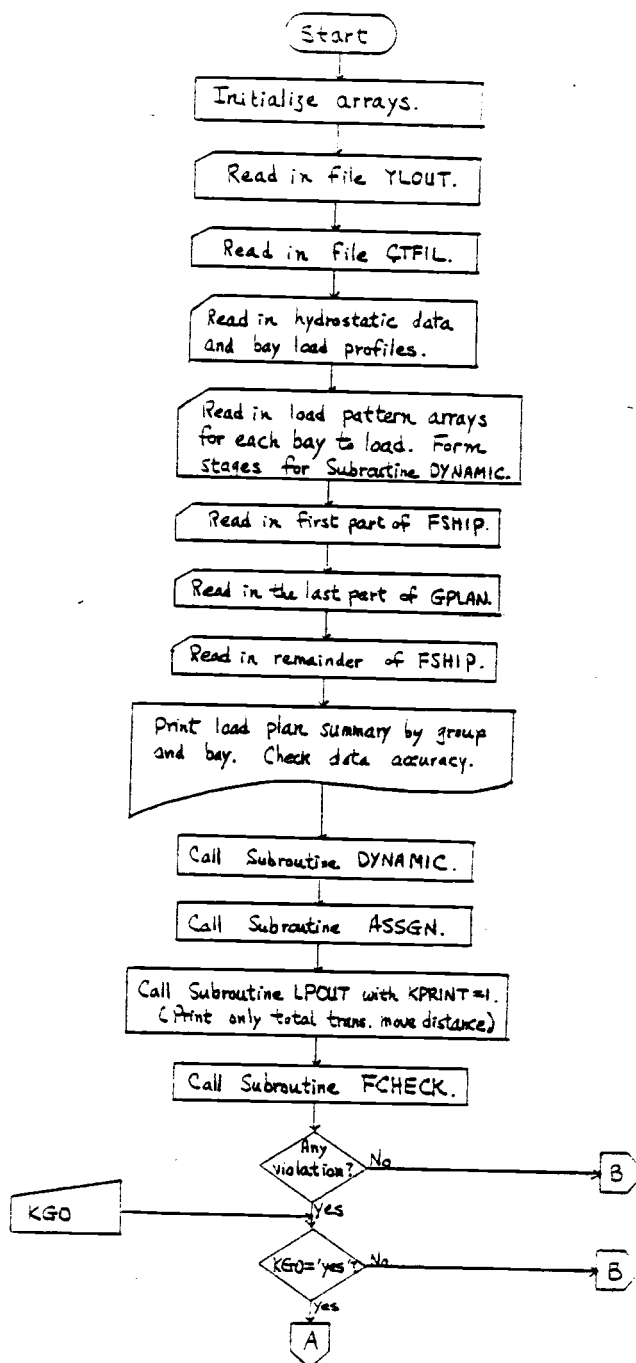 Start
Initialize arrays.
Read in file YLOUT.
Read in file GTFIL.
Read in hydrostatic data
and bay load profiles.
Read in load pattern arrays
for each bay to load. Form
stages for Subroutine DYNAMIC.
Read in first part of FSHIP.
Read in the last part of GPLAN.
Read in remainder of FSHIP.
Print load plan summary by group
and bay. Check data accuracy.
Call Subroutine DYNAMIC.
Call Subroutine ASSGN.
Call Subroutine LPOUT with KPRINT=1.
(Print only total trans. move distance)
Call Subroutine FCHECK.
Any
violation?
No
B
yes
KGO
KGO='yes'?
No
B
yes
A